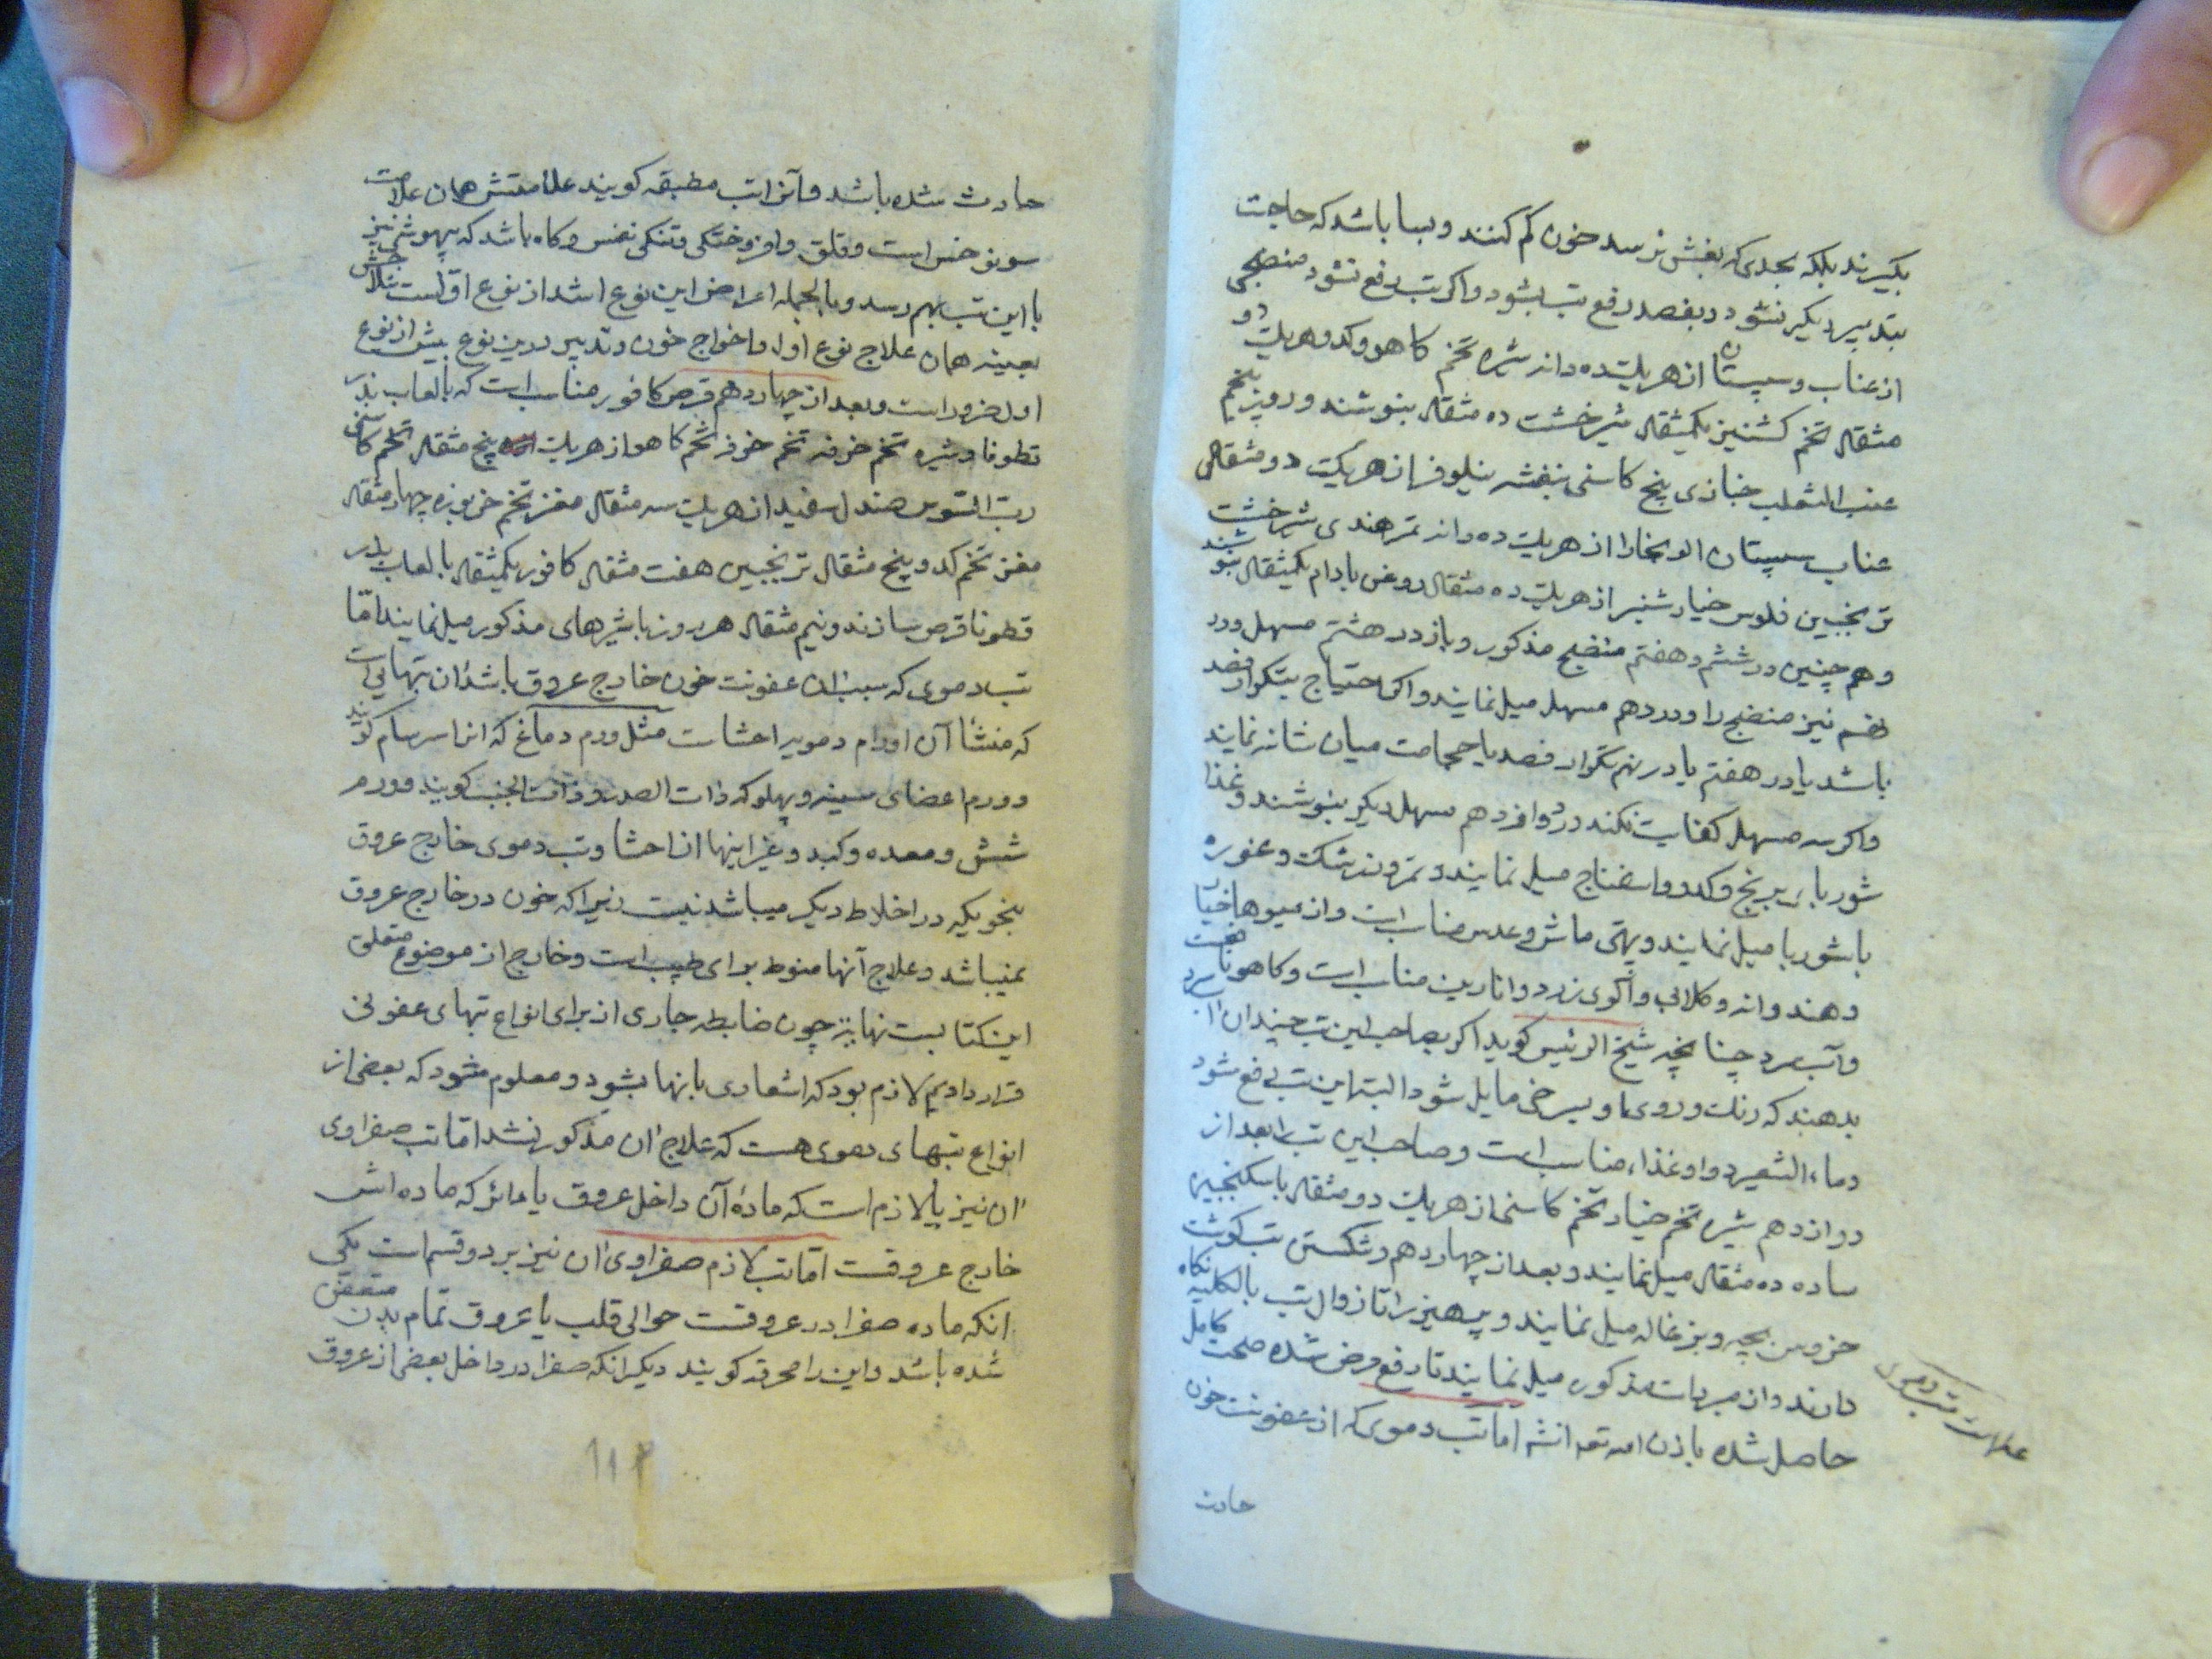 بگیرند بلکه بحدی که بغش نرسد خون کم کنند و بسا باشد که حاجت
بتدبیر دیگر نشود و بفصد رفع تب بشود و اگر تب رفع نشود منضجی
از عناب و سپستان از هریک ده دانه شیره تخم کاهو و کدو هریک دو
مثقال تخم کشنیز یکمثقال شیرخشت ده مثقال بنوشند و روز پنجم
عنب الثعلب خبازی بیخ کاسنی بنفشه نیلوفر از هریک دو مثقال
عناب سپستان الوبخارا از هریک ده دانه تمر هندی شیرخشت
ترنجبین فلوس خیارشنبر از هریک ده مثقال روغن بادام یکمثقال بنوشند
و هم چنین در ششم و هفتم منضج مذکور و باز در هشتم مسهل و در
نهم نیز منضج را و در دهم مسهل میل نمایند و اگر احتیاج بتکرار فصد
باشد یا در هفتم یا در نهم تکرار فصد یا حجامت میان شانه نمایند
و اگر سه مسهل کفایت نکند در دوازدهم مسهل دیگر بنوشند و غذا
شوربای برنج و کدو و اسفناج میل نمایند و تمر و زرشک و غوره
با شوربا میل نمایند و بهی ماش و عدس مناسب است و از میوها خیار
و هندوانه و گلابی و آلوی زرد و انارین مناسب است و کاهو
و آب سرد چنانچه شیخ الرئیس گوید اگر بصاحب این تب چندان آب سرد
بدهند که رنگ و روی او بسرخی مایل شود البته این تب رفع شود
و ماء الشعیر دوا و غذاء مناسب است و صاحب این تب را بعد از
دوازدهم شیره تخم خیار تخم کاسنی از هریک دو مثقال با سکنجبین
ساده ده مثقال میل نمایند و بعد از چهاردهم و شکستن تب گوشت
خروس بچه و بزغاله میل نمایند و پرهیز را تا زوال تب بالکلیه نگاه
دارند و از مبردات مذکور میل نمایند تا رفع مرض شده صحت کامل
حاصل شده باذن الله تعالی انشاء اما تب دموی که از عفونت خون
علامت تب دموی
حادث
حادث شده باشد و آنرا تب مطبقه گویند علامتش همان علامت
سونوخس است و قلق و افروختگی و تنگی نفس و گاه باشد که بیهوشی نیز
با این تب بهم رسد و بالجمله اعراض این نوع اشد از نوع اول است علاجش
بعینه همان علاج نوع اول و اخراج خون و تدبیر درین نوع بیش از نوع
اول ضرور است و بعد از چهاردهم قرص کافور مناسب است که بالعاب بذر
قطونا و شیره تخم خرفه تخم خرفه تخم کاهو از هریک پنج مثقال تخم کاسنی
رب السوس صندل سفید از هریک سه مثقال مغز تخم خربوزه چهار مثقال
مغز تخم کدو پنج مثقال ترنجبین هفت مثقال کافور یکمثقال بالعاب بذر
قطونا قرص سازند و نیم مثقال هر روز با شیرهای مذکور میل نمایند اما
تب دموی که سبب آن عفونت خون خارج عروق باشد آن تبهایی است
که منشأ آن اورام دمویه احشاست مثل ورم دماغ که انرا سرسام گویند
و ورم اعضای سینه و پهلو که ذات الصدر و ذات الجنب گویند و ورم
شش و معده و کبد و غیر اینها از احشا و تب دموی خارج عروق
بنحویکه در اخلاط دیگر میباشد نیست زیرا که خون در خارج عروق
نمیباشد و علاج آنها منوط برای طبیب است و خارج از موضوع متعلق
این کتابست نهایة چون ضابطه جاری از برای انواع تبهای عفونی
قرار دادیم لازم بود که اشعاری بانها بشود و معلوم شود که بعضی از
انواع تبهای دموی هست که علاج آن مذکور نشد اما تب صفراوی
آن نیز یا لازم است که مادهٔ آن داخل عروق یا دائر که ماده اش
خارج عروقست اما تب لازم صفراوی آن نیز بر دو قسم است یکی
انکه ماده صفرا در عروقست حوالی قلب یا عروق تمام بدن متعفن
شده باشد و این را محرقه گویند دیگر انکه صفرا در داخل بعضی از عروق
۱۱۴